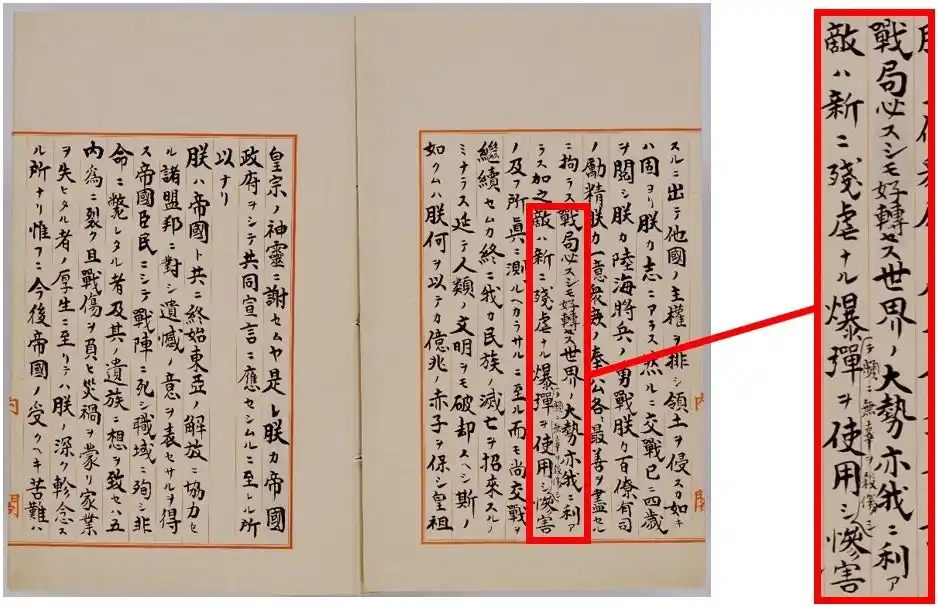 スルニ出テ他國ノ主權ヲ排シ領土ヲ侵スカ如キ
ハ固ヨリ朕カ志ニアラス然ルニ交戰已ニ四歳
ヲ閲シ朕カ陸海將兵ノ勇戰朕カ百僚有司
ノ勵精朕カ一億衆庶ノ奉公各〻最善ヲ盡セル
ニ拘ラス戰局必スシモ好轉セス世界ノ大勢亦我ニ利ア
ラス加之敵ハ新ニ殘虐ナル爆彈ヲ使用シテ頻ニ無辜ヲ殺傷シ惨害
ノ及フ所眞ニ測ルヘカラサルニ至ル而モ尚交戰ヲ
繼續セムカ終ニ我カ民族ノ滅亡ヲ招來スルノ
ミナラス延テ人類ノ文明ヲモ破却スヘシ斯ノ
如クムハ朕何ヲ以テカ億兆ノ赤子ヲ保シ皇祖
皇宗ノ神靈ニ謝セムヤ是レ朕カ帝國
政府ヲシテ共同宣言ニ應セシムルニ至レル所
以ナリ
朕ハ帝國ト共ニ終始東亞ノ解放ニ協力セ
ル諸盟邦ニ對シ遺憾ノ意ヲ表セサルヲ得
ス帝國臣民ニシテ戰陣ニ死シ職域ニ殉シ非
命ニ斃レタル者及其ノ遺族ニ想ヲ致セハ五
内爲ニ裂ク且戰傷ヲ負ヒ災禍ヲ蒙リ家業
ヲ失ヒタル者ノ厚生ニ至リテハ朕ノ深ク軫念ス
ル所ナリ惟フニ今後帝國ノ受クヘキ苦難ハ
戰局必スシモ好轉セス世界ノ大勢亦我ニ利ア
敵ハ新ニ殘虐ナル爆彈ヲ使用シテ頻ニ無辜ヲ殺傷シ惨害